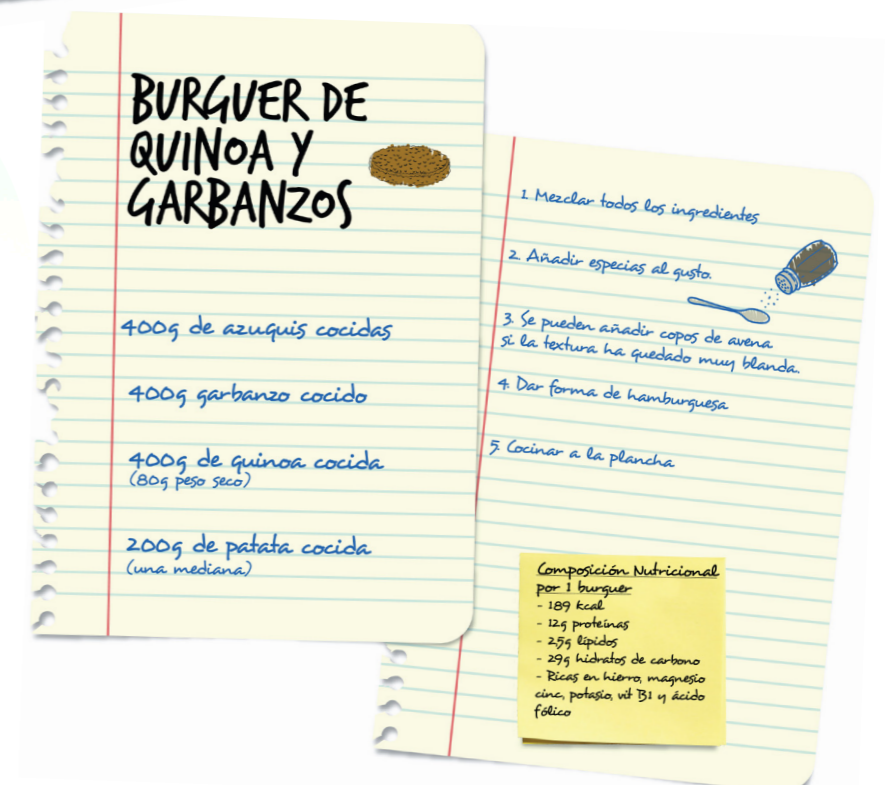 BURGUER DE
QUINOA Y
GARBANZOS
400g de azuquis cocidas
400g garbanzo cocido
400g de quinoa cocida
(80g peso seco)
200g de patata cocida
(una mediana)
1. Mezclar todos los ingredientes
2. Añadir especias al gusto.
3. Se pueden añadir copos de avena
si la textura ha quedado muy blanda.
4. Dar forma de hamburguesa
5. Cocinar a la plancha
Composición Nutricional
por 1 burguer
- 189 kcal
- 12g proteínas
- 25g lípidos
- 29g hidratos de carbono
- Ricas en hierro, magnesio
cinc, potasio, vit B1 y ácido
fólico